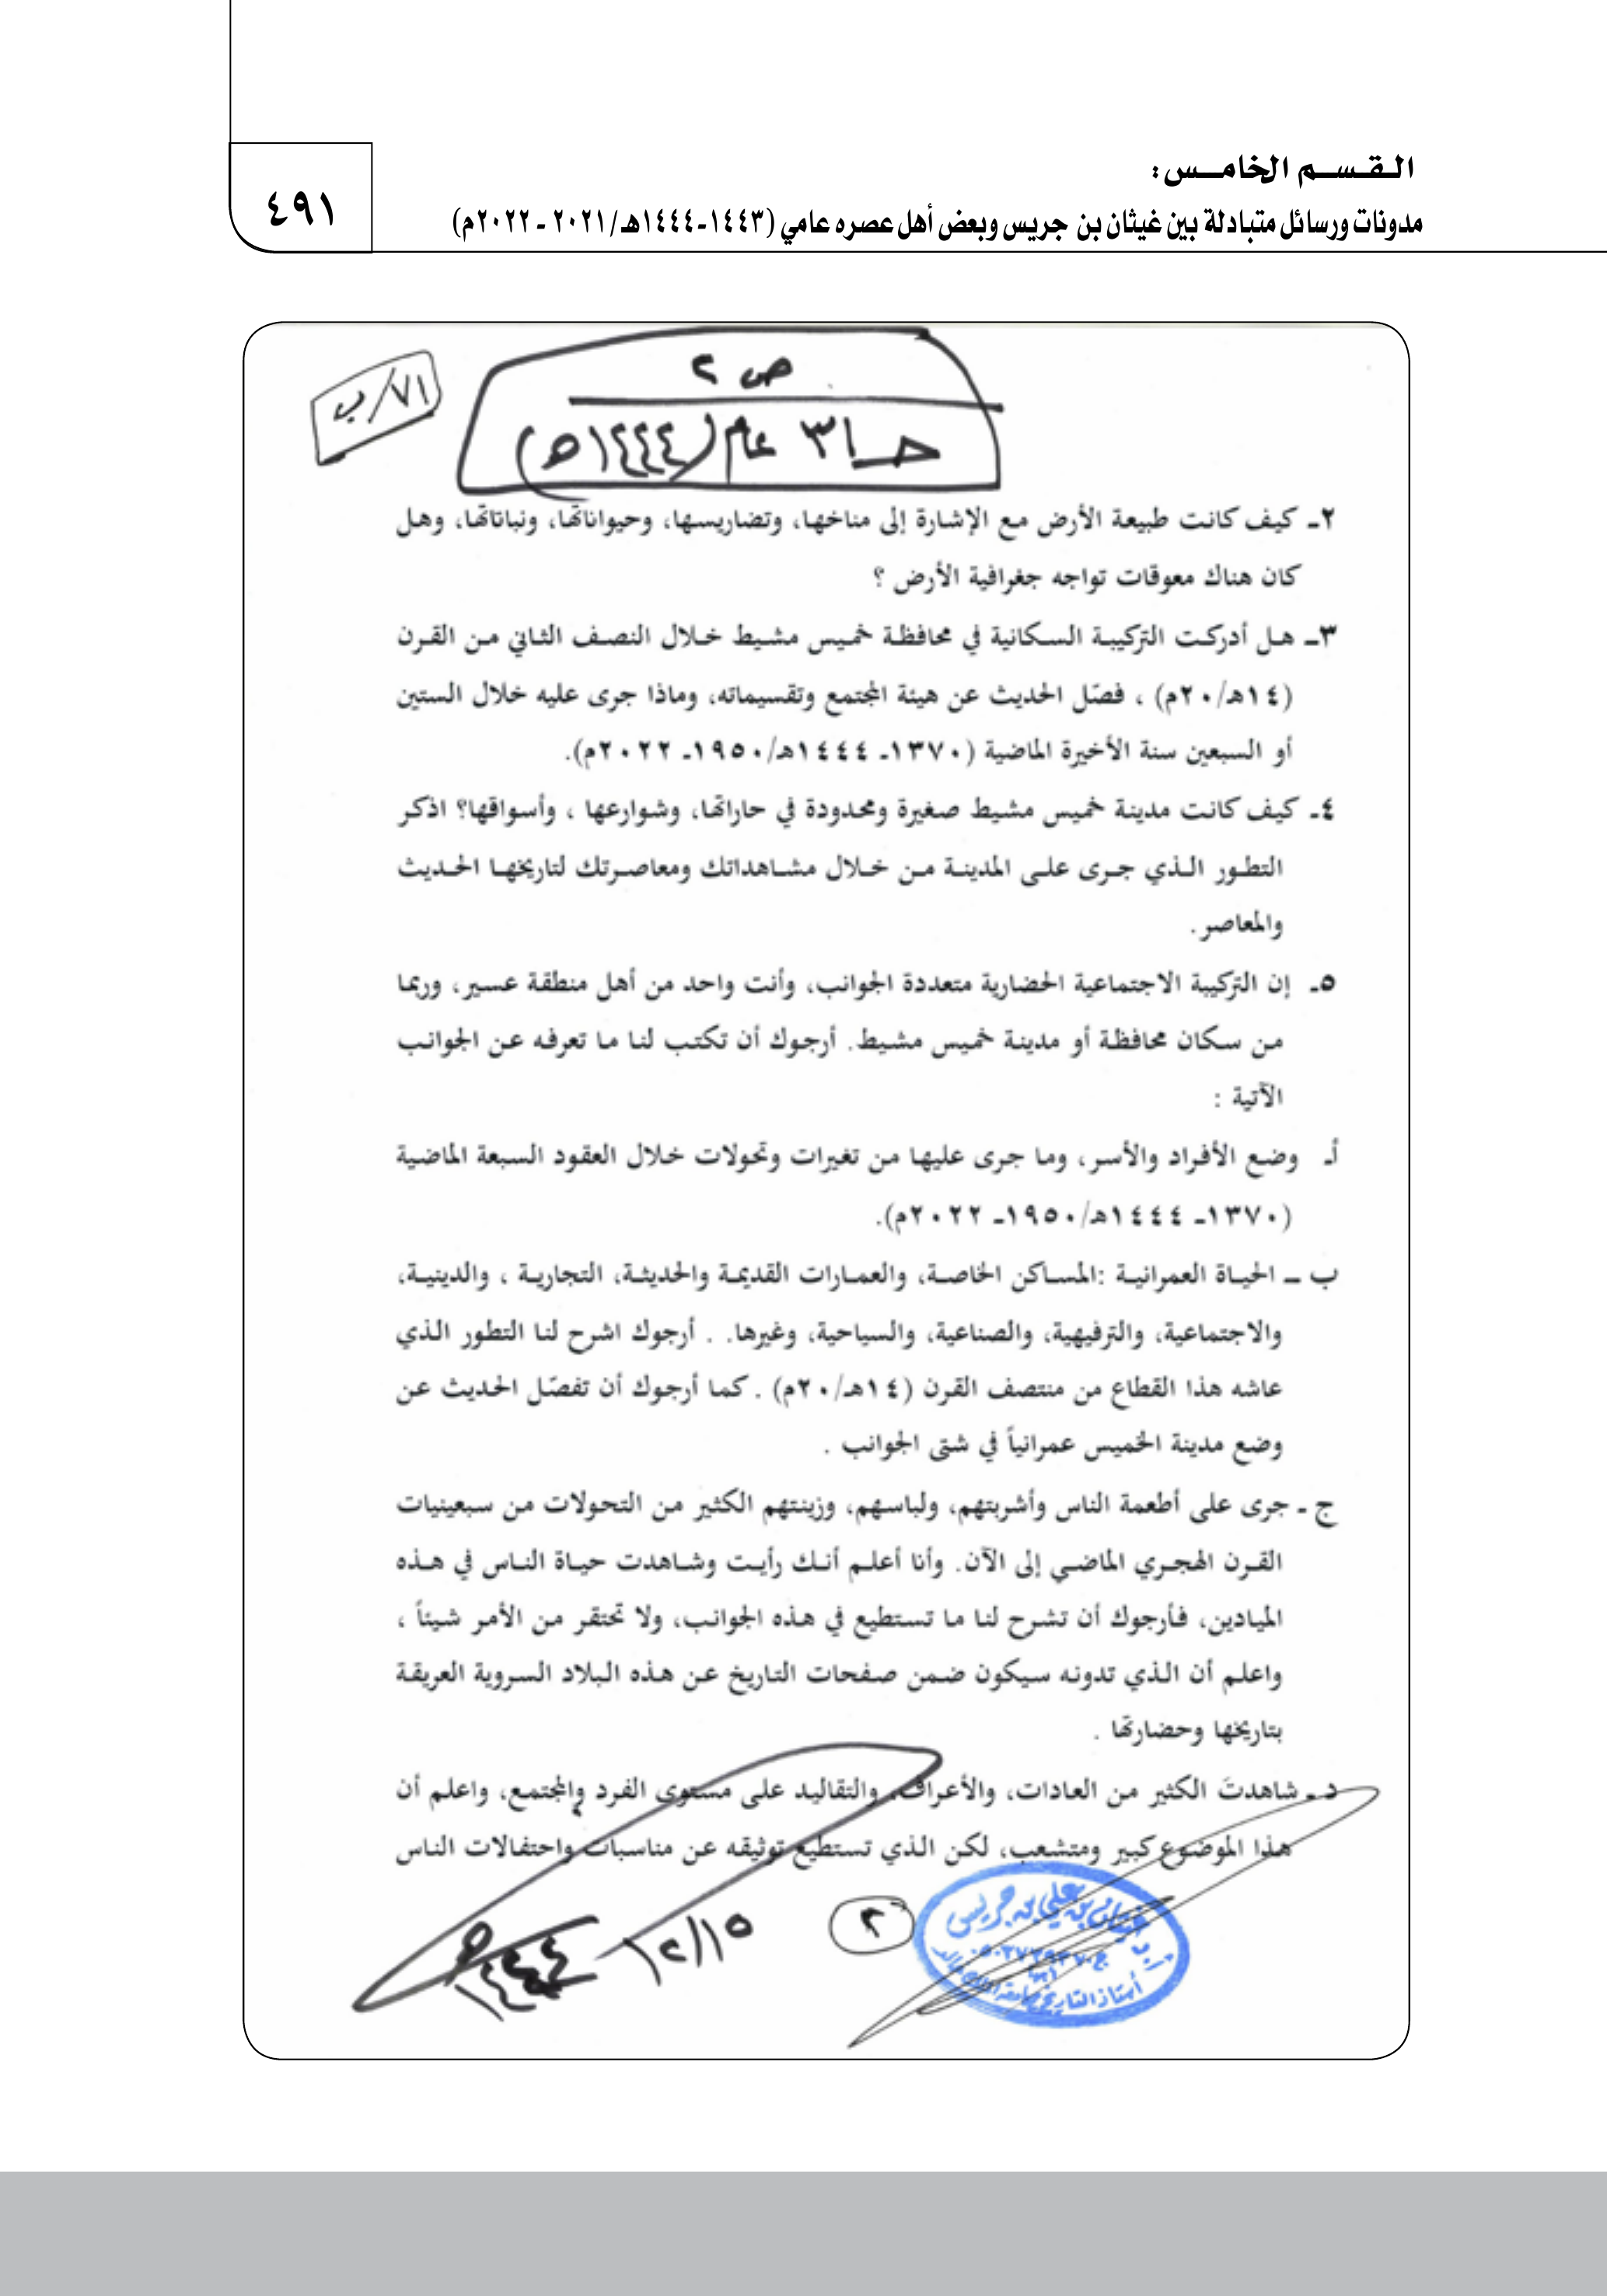 القسم الخامس:
مدونات ورسائل متبادلة بين غيثان بن جريس وبعض أهل عصره عامي (١٤٤٣-١٤٤٤هـ/ ٢٠٢١ - ٢٠٢٢م)
٤٩١
ص ٢
٧١/ب
حـ ٣١ عام (١٤٤٤هـ)
٢ـ كيف كانت طبيعة الأرض مع الإشارة إلى مناخها، وتضاريسها، وحيواناتها، ونباتاتها، وهل
كان هناك معوقات تواجه جغرافية الأرض ؟
٣ـ هل أدركت التركيبة السكانية في محافظة خميس مشيط خلال النصف الثاني من القرن
(١٤هـ/٢٠م) ، فصّل الحديث عن هيئة المجتمع وتقسيماته، وماذا جرى عليه خلال الستين
أو السبعين سنة الأخيرة الماضية (١٣٧٠ـ ١٤٤٤هـ/١٩٥٠ـ ٢٠٢٢م).
٤ـ كيف كانت مدينة خميس مشيط صغيرة ومحدودة في حاراتها، وشوارعها ، وأسواقها؟ اذكر
التطور الذي جرى على المدينة من خلال مشاهداتك ومعاصرتك لتاريخها الحديث
والمعاصر.
٥ـ إن التركيبة الاجتماعية الحضارية متعددة الجوانب، وأنت واحد من أهل منطقة عسير، وربما
من سكان محافظة أو مدينة خميس مشيط. أرجوك أن تكتب لنا ما تعرفه عن الجوانب
الآتية :
أـ وضع الأفراد والأسر، وما جرى عليها من تغيرات وتحولات خلال العقود السبعة الماضية
(١٣٧٠ـ ١٤٤٤هـ/١٩٥٠ـ ٢٠٢٢م).
ب ـ الحياة العمرانية :المساكن الخاصة، والعمارات القديمة والحديثة، التجارية ، والدينية،
والاجتماعية، والترفيهية، والصناعية، والسياحية، وغيرها. . أرجوك اشرح لنا التطور الذي
عاشه هذا القطاع من منتصف القرن (١٤هـ/٢٠م) . كما أرجوك أن تفصّل الحديث عن
وضع مدينة الخميس عمرانياً في شتى الجوانب .
ج ـ جرى على أطعمة الناس وأشربتهم، ولباسهم، وزينتهم الكثير من التحولات من سبعينيات
القرن الهجري الماضي إلى الآن. وأنا أعلم أنك رأيت وشاهدت حياة الناس في هذه
الميادين، فأرجوك أن تشرح لنا ما تستطيع في هذه الجوانب، ولا تحتقر من الأمر شيئاً ،
واعلم أن الذي تدونه سيكون ضمن صفحات التاريخ عن هذه البلاد السروية العريقة
بتاريخها وحضارتها .
د ـ شاهدتَ الكثير من العادات، والأعراف، والتقاليد على مستوى الفرد والمجتمع، واعلم أن
هذا الموضوع كبير ومتشعب، لكن الذي تستطيع توثيقه عن مناسبات واحتفالات الناس
٢
غيثان بن علي بن جريس
أستاذ التاريخ بجامعة الملك خالد
١٢/١٥
١٤٤٤هـ